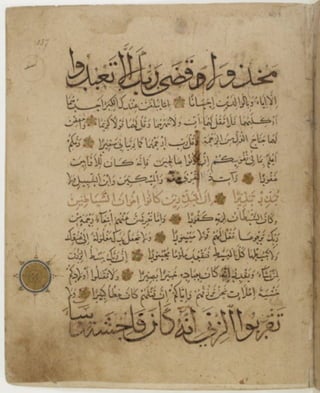 مخذولا وقضى ربك ألا تعبدوا
إلا إياه وبالوالدين إحسانا إما يبلغن عندك الكبر أحدهما
أو كلاهما فلا تقل لهما أف ولا تنهرهما وقل لهما قولا كريما واخفض
لهما جناح الذل من الرحمة وقل رب ارحمهما كما ربياني صغيرا ربكم
أعلم بما في نفوسكم إن تكونوا صالحين فإنه كان للأوابين
غفورا وآت ذا القربى حقه والمسكين وابن السبيل ولا
تبذر تبذيرا إن المبذرين كانوا إخوان الشياطين
وكان الشيطان لربه كفورا وإما تعرضن عنهم ابتغاء رحمة من
ربك ترجوها فقل لهم قولا ميسورا ولا تجعل يدك مغلولة إلى عنقك
ولا تبسطها كل البسط فتقعد ملوما محسورا إن ربك يبسط الرزق
لمن يشاء ويقدر إنه كان بعباده خبيرا بصيرا ولا تقتلوا أولادكم
خشية إملاق نحن نرزقهم وإياكم إن قتلهم كان خطئا كبيرا ولا
تقربوا الزنى إنه كان فاحشة وسا